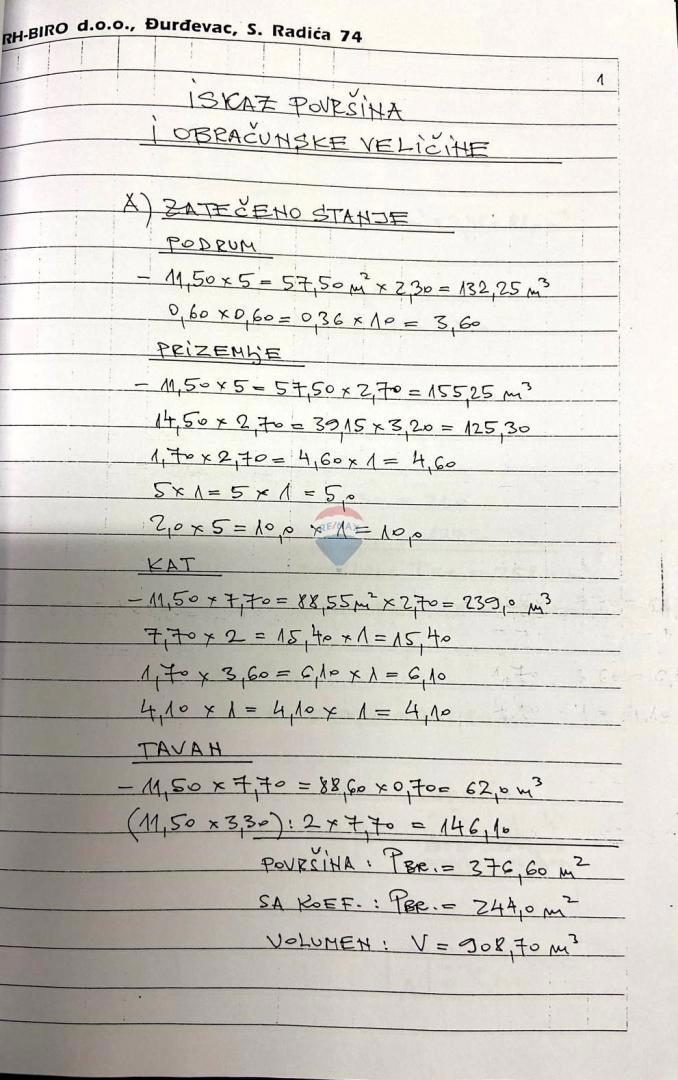 RH-BIRO d.o.o., Đurđevac, S. Radića 74
1
ISKAZ POVRŠINA
I OBRAČUNSKE VELIČINE
A) ZATEČENO STANJE
PODRUM
- 11,50 x 5 = 57,50 m² x 2,30 = 132,25 m³
0,60 x 0,60 = 0,36 x 10 = 3,60
PRIZEMLJE
- 11,50 x 5 = 57,50 x 2,70 = 155,25 m³
14,50 x 2,70 = 39,15 x 3,20 = 125,30
1,70 x 2,70 = 4,60 x 1 = 4,60
5 x 1 = 5 x 1 = 5,0
2,0 x 5 = 10,0 x 1 = 10,0
RE/MAX
KAT
- 11,50 x 7,70 = 88,55 m² x 2,70 = 239,0 m³
7,70 x 2 = 15,40 x 1 = 15,40
1,70 x 3,60 = 6,10 x 1 = 6,10
4,10 x 1 = 4,10 x 1 = 4,10
TAVAN
- 11,50 x 7,70 = 88,60 x 0,70 = 62,0 m³
(11,50 x 3,30) : 2 x 7,70 = 146,10
POVRŠINA : PBR. = 376,60 m²
SA KOEF. : PBR. = 244,0 m²
VOLUMEN : V = 908,70 m³